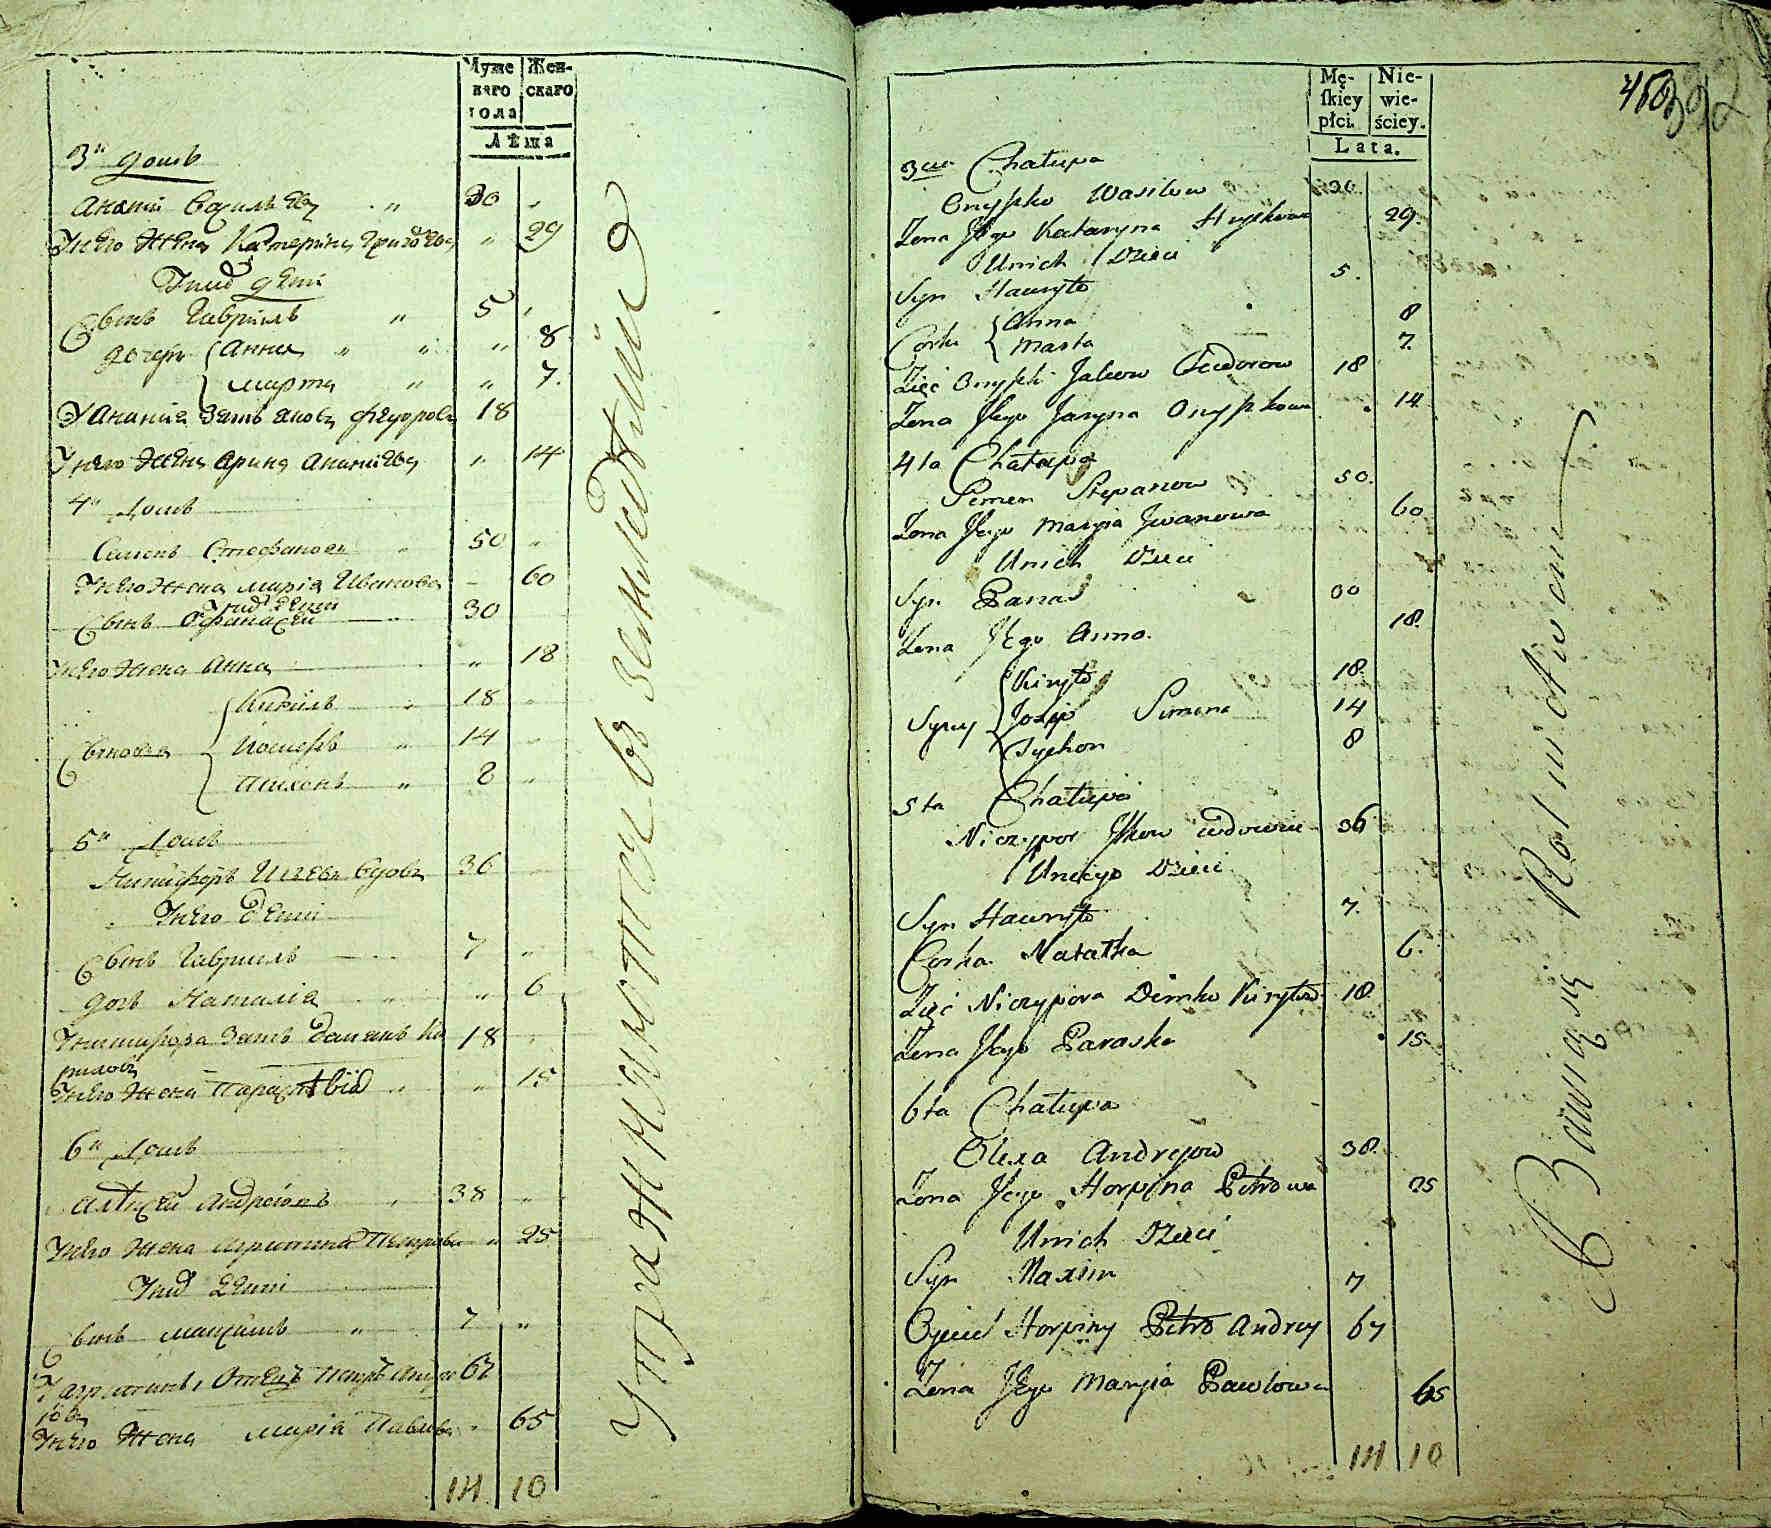 Муже Жен-
скаго скаго
пола
Лѣта
3й домъ
Ананій Васильевъ " 30 "
У него жена Катерина Григорьева " 29
У нихъ дѣти
Сынъ Гавриилъ " 5 "
дочери Анна " " " 8
Марта " " 7.
У Ананія зять Яковъ Федоровъ 18
У него жена Арина Ананіева " 14
4й домъ
Семенъ Стефановъ " 50 "
У него жена Марія Иванова - 60
У нихъ дѣти
Сынъ Афанасей 30
У него жена Анна " 18
Кирилъ " 18 "
Сыновья Иосифъ " 14 "
Тихонъ " 8 "
5й домъ
Никифоръ Илевъ вдовъ 36
У него дѣти
Сынъ Гавриилъ 7 "
дочь Наталія " " 6
У Никифора зять Демьянъ Ки 18
риловъ
У него жена Параскевія " " 15
6й домъ
Алексей Андреевъ " 38 "
У него жена Агрипина Петрова " 25
У нихъ дѣти
Сынъ Максимъ " 7 "
У Агрипины Отецъ Петръ Андре 67
евъ
У него жена Марія Павлова " 65
14 10
Упражняются въ земледѣліи
Mę- Nie-
ſkiey wie-
płci. ściey.
Lata.
3cia Chałupa
Onyſzko Wasilow 30.
Zona Jego Kataryna Hryſkowa 29.
Unich Dzieci
Syn Hawryło 5.
Corki Anna 8
Marta 7.
Zięć Onyſzki Jakow Fedorow 18
Zona Jego Jaryna Onyſzkowa 14
4ta Chałupa
Semen Stepanow 50.
Zona Jego Maryia Jwanowa 60
Unich Dzieci
Syn Panas 30
Zona Jego Anna. 18.
Kiryło 18.
Synowy Jozef Semena 14
Tychon 8
5ta Chałupa
Niczypor Jlkow wdowiec 36
Uniego Dzieci
Syn Hawryło 7.
Corka Natałka 6.
Zięć Niczypora Demko Kiryłow 18.
Zona Jego Paraska 15.
6ta Chałupa
Olexa Andrejow 38.
Zona Jego Horpina Petrowa 25
Unich Dzieci
Syn Maxim 7
Oyciec Horpiny Petro Andrey 67
Zona Jego Maryia Pawłowa 65
14 10
Bawią się Rolnictwem